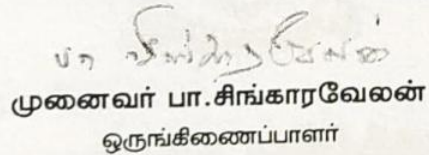 பா சிங்காரவேலன்
முனைவர் பா.சிங்காரவேலன்
ஒருங்கிணைப்பாளர்